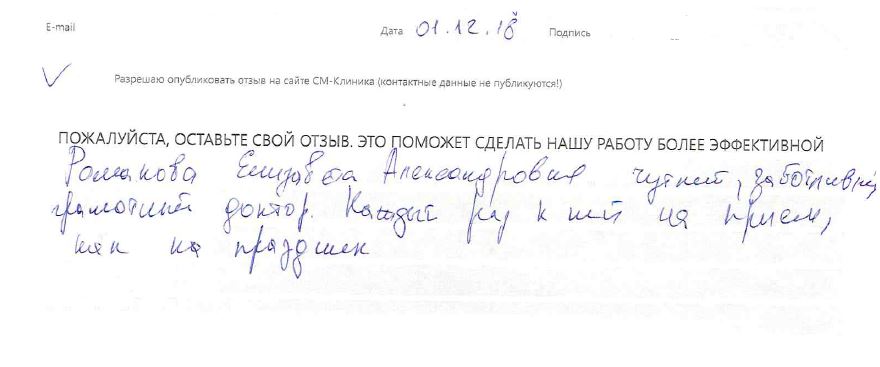 E-mail
Дата 01.12.18 Подпись
Разрешаю опубликовать отзыв на сайте СМ-Клиника (контактные данные не публикуются!)
ПОЖАЛУЙСТА, ОСТАВЬТЕ СВОЙ ОТЗЫВ. ЭТО ПОМОЖЕТ СДЕЛАТЬ НАШУ РАБОТУ БОЛЕЕ ЭФФЕКТИВНОЙ
Романова Елизавета Александровна чуткий, заботливый,
грамотный доктор. Каждый раз к ней на прием,
как на праздник